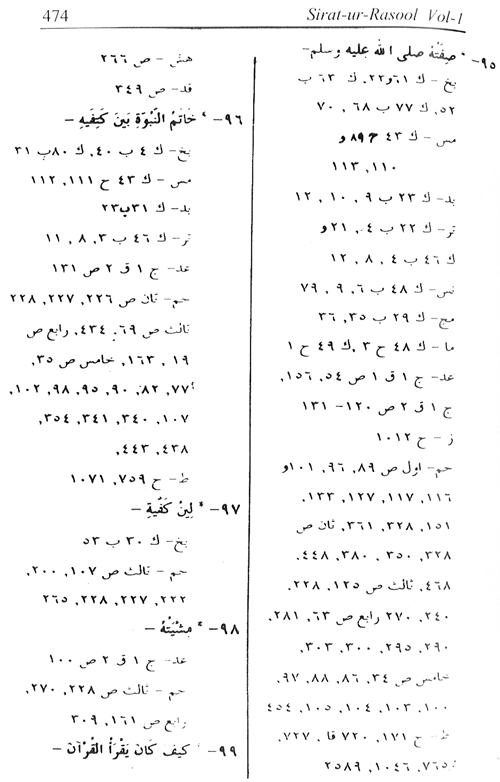 474
Sirat-ur-Rasool Vol-1
٩٥- ٭ صِفَتُهُ صلى الله عليه وسلم-
بخ- ك ٦١ و٢٣, ك ٦٣ ب
٥٢, ك ٧٧ ب ٦٨ , ٧٠
مس- ك ٤٣ ح ٨٩ و
١١٠, ١١٣
بد- ك ٢٣ ب ٩ , ١٠ , ١٢
تر- ك ٢٢ ب ٤, ٢١ و
ك ٤٦ ب ٤ , ٨ , ١٢
نس- ك ٤٨ ب ٦ , ٩ , ٧٩
مج- ك ٢٩ ب ٣٥, ٣٦
ما- ك ٤٨ ح ٣ ,ك ٤٩ ح ١
عد- ج ١ ق ١ ص ٥٤, ١٥٦,
ج ١ ق ٢ ص ١٢٠- ١٣١
ز - ح ١٠١٢
حم- اول ص ٨٩, ٩٦, ١٠١ و
١١٦, ١١٧, ١٢٧, ١٣٣,
١٥١, ٣٢٨, ٣٦١, ثان ص
٣٢٨, ٣٥٠, ٣٨٠, ٤٤٨,
٤٦٨, ثالث ص ١٢٥, ٢٢٨,
٢٤٠, ٢٧٠ رابع ص ٦٣, ٢٨١,
٢٩٠, ٢٩٥, ٣٠٠, ٣٠٣,
خامس ص ٣٤, ٨٦, ٨٨, ٩٧,
١٠٠, ١٠٣, ١٠٤, ١٠٥, ٤٥٤
ط- ح ١٧١, ٧٢٠ قا , ٧٢٧,
٧٦٥, ١٠٤٦, ٢٥٨٩
هش - ص ٢٦٦
قد- ص ٣٤٩
٩٦- ٭ خَاتَمُ النُّبُوَّةِ بَيْنَ كَتِفَيْهِ -
بخ- ك ٤ ب ٤٠, ك ٨٠ ب ٣١
مس- ك ٤٣ ح ١١١, ١١٢
بد- ك ٣١ ب ٢٣
تر- ك ٤٦ ب ٣, ٨ , ١١
عد- ج ١ ق ٢ ص ١٣١
حم- ثان ص ٢٢٦, ٢٢٧, ٢٢٨
ثالث ص ٦٩, ٤٣٤, رابع ص
١٩ , ١٦٣, خامس ص ٣٥,
٧٧, ٨٢, ٩٠, ٩٥, ٩٨, ١٠٢,
١٠٧, ٣٤٠, ٣٤١, ٣٥٤,
٤٣٨, ٤٤٣,
ط- ح ٧٥٩, ١٠٧١
٩٧- ٭ لِيْنُ كَفَّيْهِ -
بخ- ك ٣٠ ب ٥٣
حم- ثالث ص ١٠٧, ٢٠٠,
٢٢٢, ٢٢٧, ٢٢٨, ٢٦٥
٩٨- ٭ مِشْيَتُهُ -
عد- ج ١ ق ٢ ص ١٠٠
حم- ثالث ص ٢٢٨, ٢٧٠,
رابع ص ١٦١, ٣٠٩
٩٩- ٭ كيف كَانَ يَقْرَأُ القُرْآنَ -